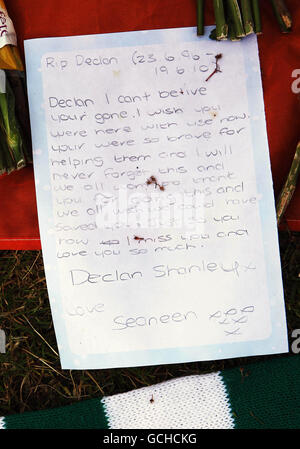 Rip Declan (23.6.96-
19.6.10)
Declan I cant belive
your gone. I wish you
were here with use now.
your were so brave for
helping them and I will
never forget this and
we all
you this and
we all wish could have
saved you you
now I miss you and
love you so much.
Declan Shanley x
Love
Seaneen xxx
x
alamy
GCHCKG